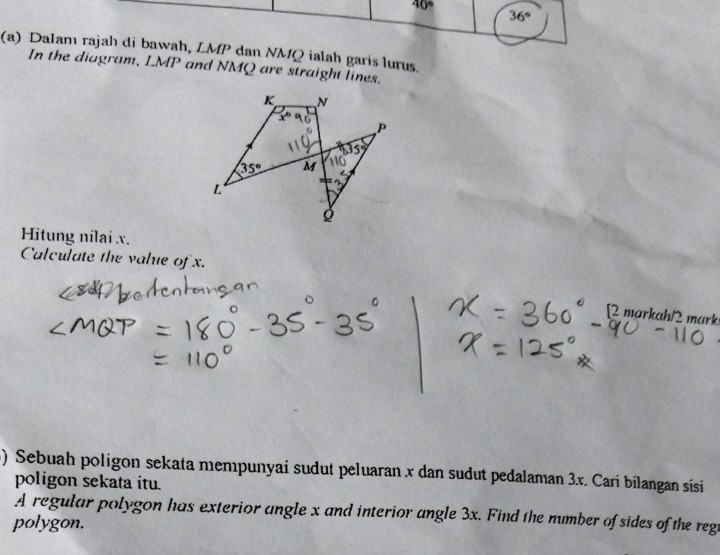 40°
36°
(a) Dalam rajah di bawah, LMP dan NMQ ialah garis lurus.
In the diagram, LMP and NMQ are straight lines.
K N
x° 90
P
110° 35°
M 110
35°
L
35
Q
Hitung nilai x.
Calculate the value of x.
[2 markah/2 mark
bertentangan
∠MQP = 180° - 35° - 35°
= 110°
x = 360° - 90 - 110
x = 125°
) Sebuah poligon sekata mempunyai sudut peluaran x dan sudut pedalaman 3x. Cari bilangan sisi
poligon sekata itu.
A regular polygon has exterior angle x and interior angle 3x. Find the number of sides of the reg
polygon.